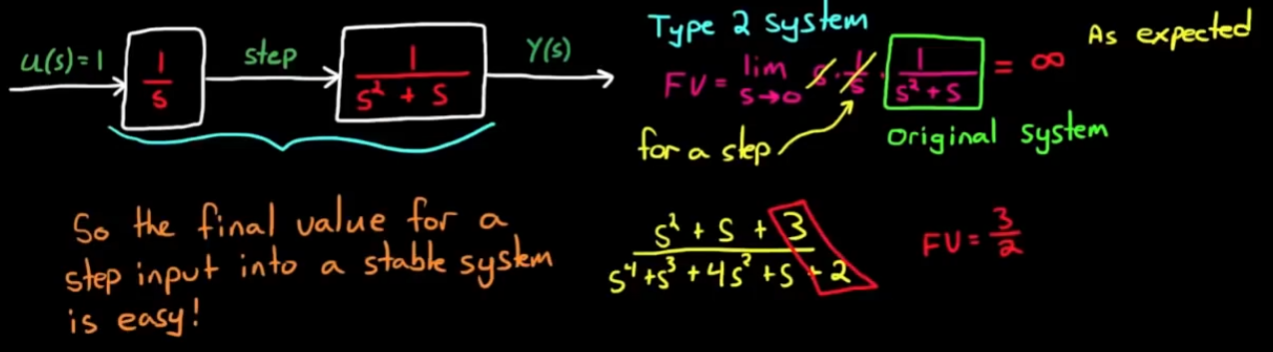 u(s)=1
1/s
step
1/(s² + s)
Y(s)
Type 2 system
FV = lim s→0 s · 1/s · 1/(s² + s) = ∞
As expected
for a step
original system
So the final value for a
step input into a stable system
is easy!
(s² + s + 3)/(s⁴ + s³ + 4s² + s + 2)
FV = 3/2